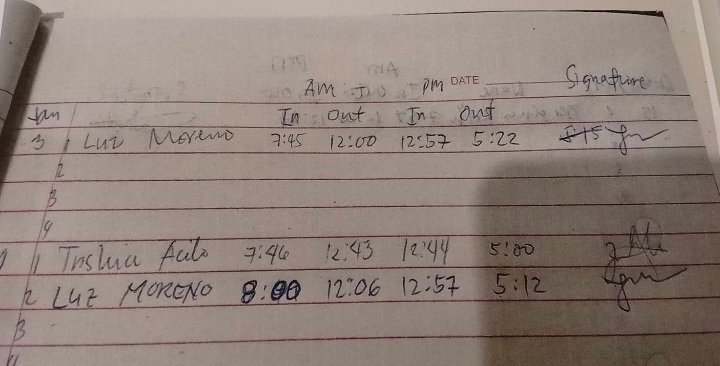 AM PM DATE Signature
Jan In Out In Out
3 1 Luz Moreno 7:45 12:00 12:57 5:22
2
3
4
1 7:46 12:43 12:44 5:00
2 LUZ MORENO 8:00 12:06 12:57 5:12
3
4